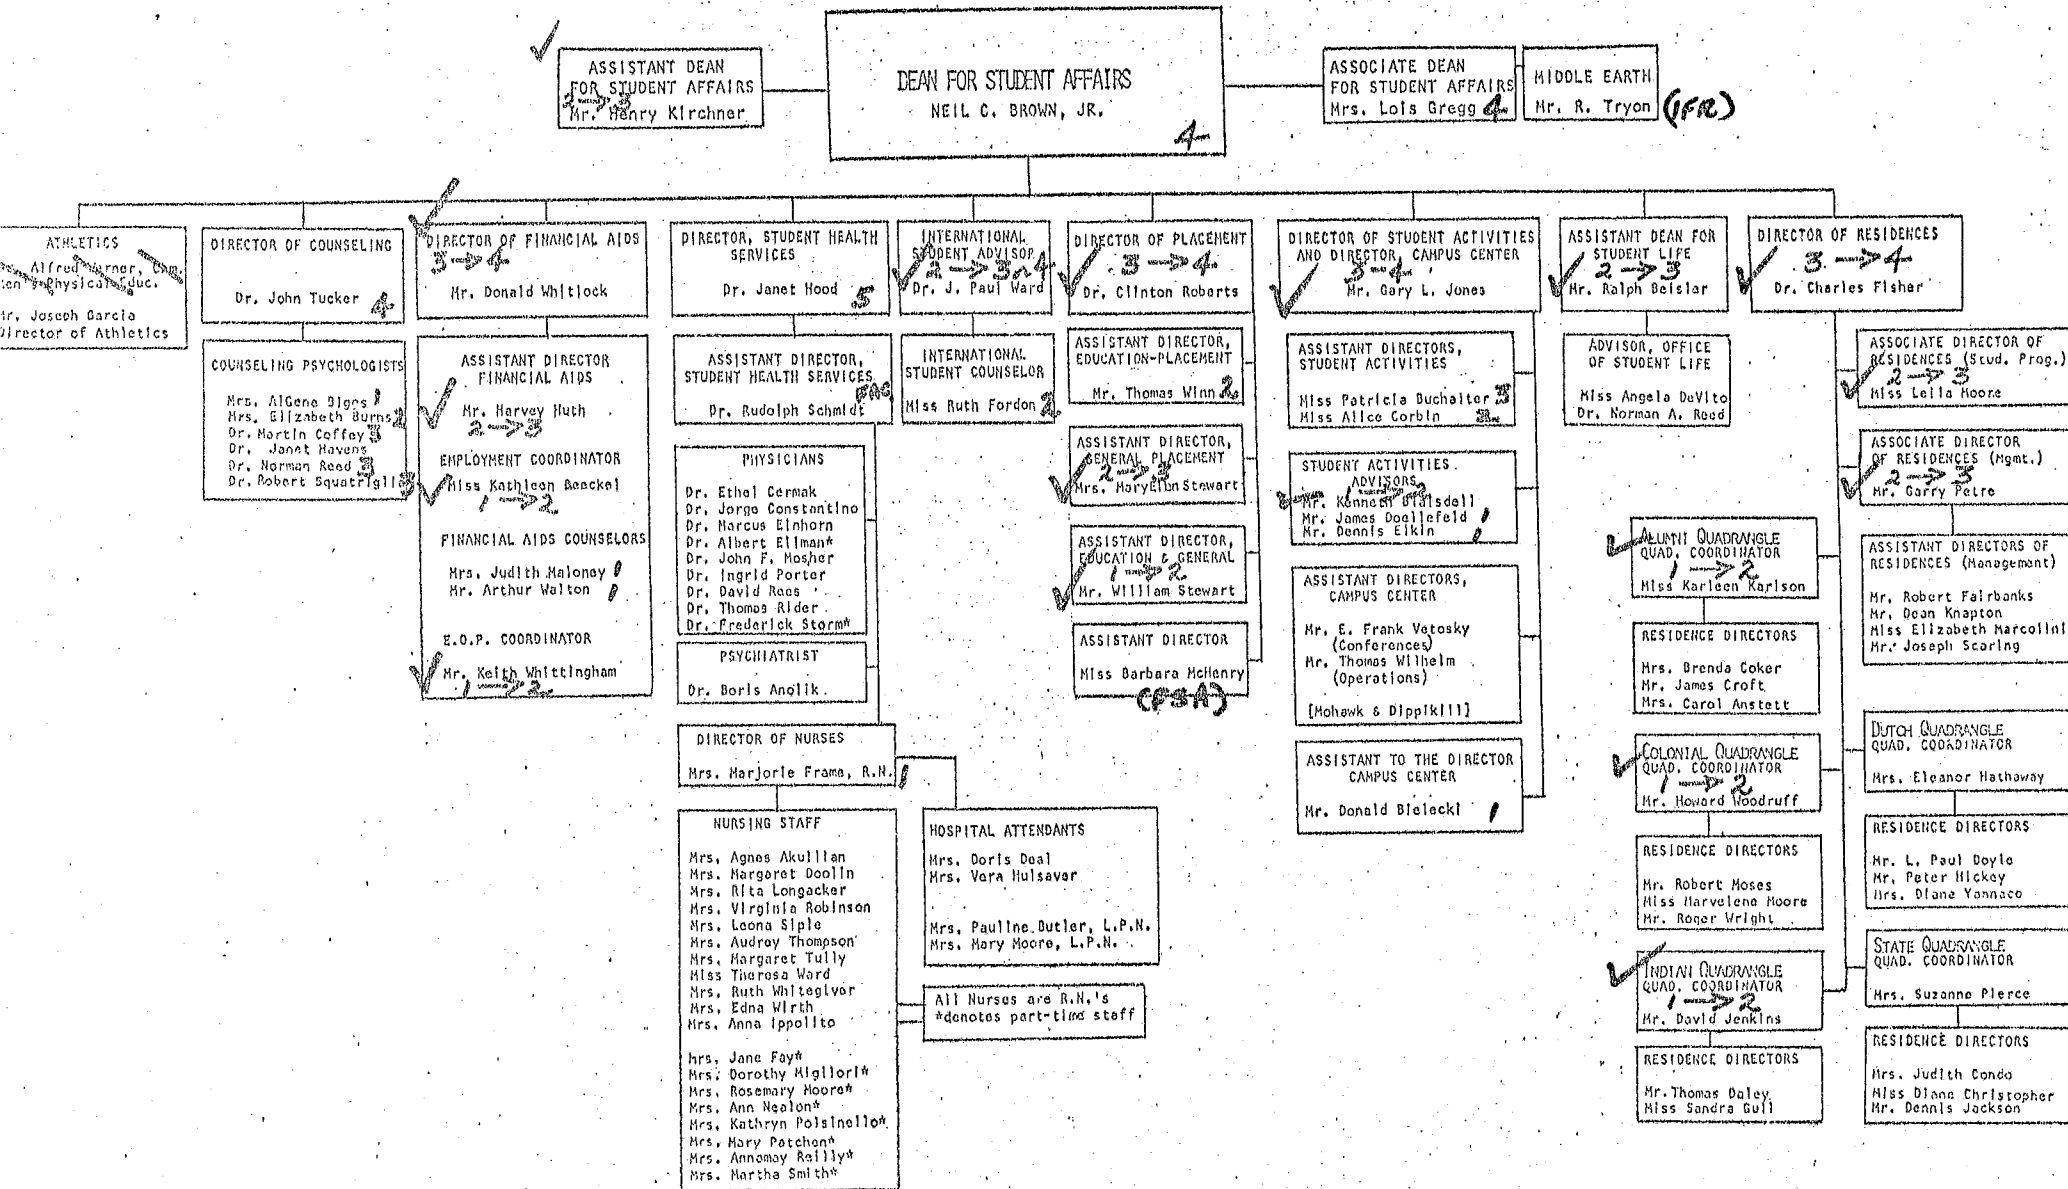 ASSISTANT DEAN
FOR STUDENT AFFAIRS
2→3
Mr. Henry Kirchner
DEAN FOR STUDENT AFFAIRS
NEIL C. BROWN, JR.
4
ASSOCIATE DEAN
FOR STUDENT AFFAIRS
Mrs. Lois Gregg 4
MIDDLE EARTH
Mr. R. Tryon
(IFR)
ATHLETICS
Alfred
Physical Educ.
Mr. Joseph Garcia
Director of Athletics
DIRECTOR OF COUNSELING
Dr. John Tucker 4
COUNSELING PSYCHOLOGISTS
Mrs. AlGene Bigns 1
Mrs. Elizabeth Burns 2
Dr. Martin Coffey 3
Dr. Janet Havens
Dr. Norman Reed 3
Dr. Robert Squatriglia 3
DIRECTOR OF FINANCIAL AIDS
3→4
Mr. Donald Whitlock
ASSISTANT DIRECTOR
FINANCIAL AIDS
Mr. Harvey Huth
2→3
EMPLOYMENT COORDINATOR
Miss Kathleen Beeckel
1→2
FINANCIAL AIDS COUNSELORS
Mrs. Judith Maloney 1
Mr. Arthur Walton 1
E.O.P. COORDINATOR
Mr. Keith Whittingham
1→2
DIRECTOR, STUDENT HEALTH
SERVICES
Dr. Janet Hood 5
ASSISTANT DIRECTOR,
STUDENT HEALTH SERVICES
FAC
Dr. Rudolph Schmidt
PHYSICIANS
Dr. Ethel Cermak
Dr. Jorge Constantino
Dr. Marcus Einhorn
Dr. Albert Ellman*
Dr. John F. Mosher
Dr. Ingrid Porter
Dr. David Rees
Dr. Thomas Rider
Dr. Frederick Storm*
PSYCHIATRIST
Dr. Boris Anolik
DIRECTOR OF NURSES
Mrs. Marjorie Frame, R.N. 1
NURSING STAFF
Mrs. Agnes Akullian
Mrs. Margaret Doolin
Mrs. Rita Longacker
Mrs. Virginia Robinson
Mrs. Leona Siple
Mrs. Audrey Thompson
Mrs. Margaret Tully
Miss Theresa Ward
Mrs. Ruth Whitegiver
Mrs. Edna Wirth
Mrs. Anna Ippolito
Mrs. Jane Fay*
Mrs. Dorothy Migliori*
Mrs. Rosemary Moore*
Mrs. Ann Nealon*
Mrs. Kathryn Polsinello*
Mrs. Mary Patchen*
Mrs. Annamay Reilly*
Mrs. Martha Smith*
HOSPITAL ATTENDANTS
Mrs. Doris Deal
Mrs. Vera Hulsaver
Mrs. Pauline Butler, L.P.N.
Mrs. Mary Moore, L.P.N.
All Nurses are R.N.'s
*denotes part-time staff
INTERNATIONAL
STUDENT ADVISOR
2→3 or 4
Dr. J. Paul Ward
INTERNATIONAL
STUDENT COUNSELOR
Miss Ruth Fordon 2
DIRECTOR OF PLACEMENT
3→4
Dr. Clinton Roberts
ASSISTANT DIRECTOR,
EDUCATION-PLACEMENT
Mr. Thomas Winn 2
ASSISTANT DIRECTOR,
GENERAL PLACEMENT
2→3
Mrs. MaryEllen Stewart
ASSISTANT DIRECTOR,
EDUCATION & GENERAL
1→2
Mr. William Stewart
ASSISTANT DIRECTOR
Miss Barbara McHenry
(FSA)
DIRECTOR OF STUDENT ACTIVITIES
AND DIRECTOR, CAMPUS CENTER
3-4
Mr. Gary L. Jones
ASSISTANT DIRECTORS,
STUDENT ACTIVITIES
Miss Patricia Buchalter 3
Miss Alice Corbin 2
STUDENT ACTIVITIES
ADVISORS
1→2
Mr. Kenneth Blaisdell
Mr. James Doellefeld 1
Mr. Dennis Elkin 1
ASSISTANT DIRECTORS,
CAMPUS CENTER
Mr. E. Frank Vetosky
(Conferences)
Mr. Thomas Wilhelm
(Operations)
[Mohawk & Dippikill]
ASSISTANT TO THE DIRECTOR
CAMPUS CENTER
Mr. Donald Bielecki 1
ASSISTANT DEAN FOR
STUDENT LIFE
2→3
Mr. Ralph Beisler
ADVISOR, OFFICE
OF STUDENT LIFE
Miss Angela DeVito
Dr. Norman A. Reed
DIRECTOR OF RESIDENCES
3→4
Dr. Charles Fisher
ASSOCIATE DIRECTOR OF
RESIDENCES (Stud. Prog.)
2→3
Miss Leila Moore
ASSOCIATE DIRECTOR
OF RESIDENCES (Mgmt.)
2→3
Mr. Garry Petre
ASSISTANT DIRECTORS OF
RESIDENCES (Management)
Mr. Robert Fairbanks
Mr. Dean Knapton
Miss Elizabeth Marcolini
Mr. Joseph Scaring
ALUMNI QUADRANGLE
QUAD. COORDINATOR
1→2
Miss Karleen Karlson
RESIDENCE DIRECTORS
Mrs. Brenda Coker
Mr. James Croft
Mrs. Carol Anstett
COLONIAL QUADRANGLE
QUAD. COORDINATOR
1→2
Mr. Howard Woodruff
RESIDENCE DIRECTORS
Mr. Robert Moses
Miss Marvelene Moore
Mr. Roger Wright
INDIAN QUADRANGLE
QUAD. COORDINATOR
1→2
Mr. David Jenkins
RESIDENCE DIRECTORS
Mr. Thomas Daley
Miss Sandra Gull
DUTCH QUADRANGLE
QUAD. COORDINATOR
Mrs. Eleanor Hathaway
RESIDENCE DIRECTORS
Mr. L. Paul Doyle
Mr. Peter Hickey
Mrs. Diane Yannaco
STATE QUADRANGLE
QUAD. COORDINATOR
Mrs. Suzanne Pierce
RESIDENCE DIRECTORS
Mrs. Judith Condo
Miss Diane Christopher
Mr. Dennis Jackson